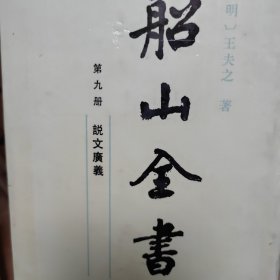 明〕王夫之 著
船山全書
第九册
説文廣義